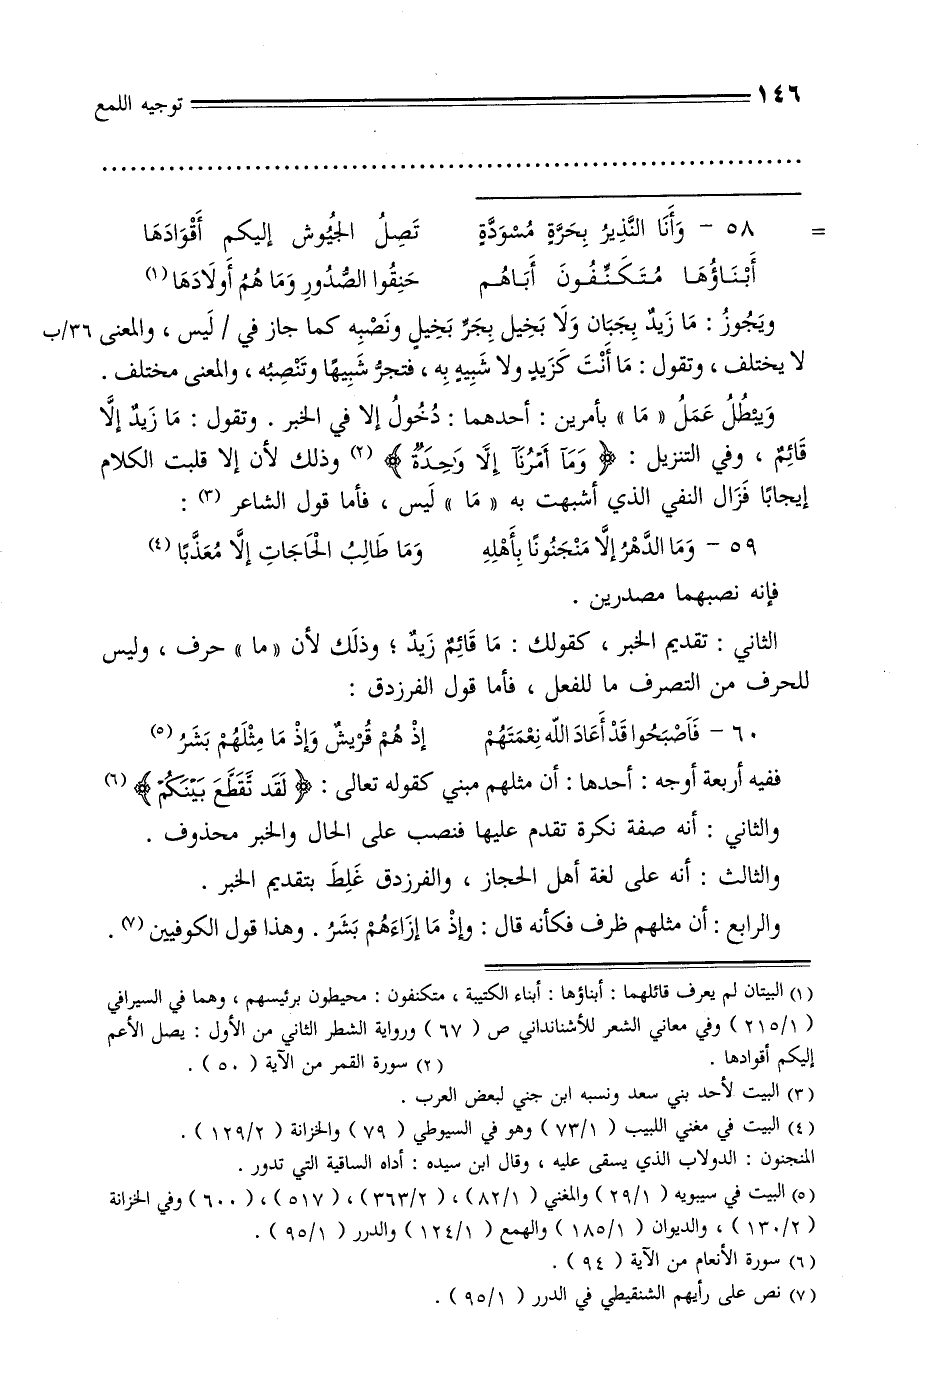 ١٤٦ توجيه اللمع
= ٥٨ - وَأَنَا النَّذِيرُ بِحَرَّةٍ مُسْوَدَّةٍ تَصِلُ الجُيُوش إليكم أَقْوَادَهَا
أَبْنَاؤُهَا مُتَكَنِّفُونَ أَبَاهُم حَنِقُوا الصُّدُورِ وَمَا هُمُ أَولَادَهَا (١)
ويَجُوزُ : مَا زَيدٌ بِجَبَان وَلَا بَخِيل بِجَرِّ بَخِيلٍ ونَصْبِه كما جاز في / لَيس ، والمعنى ٣٦/ب
لا يختلف ، وتقول : مَا أَنْتَ كَزَيدٍ ولا شَبِيهٍ بِه ، فتجرُّ شَبِيهًا وتَنْصِبُه ، والمعنى مختلف .
وَيَبْطُلُ عَمَلُ « مَا » بأمرين : أحدهما : دُخُولُ إلا في الخبر . وتقول : مَا زَيدٌ إلَّا
قَائِمٌ ، وفي التنزيل : ﴿ وَمَآ أَمْرُنَآ إِلَّا وَٰحِدَةٌ ﴾ (٢) وذلك لأن إلا قلبت الكلام
إيجابًا فَزَال النفي الذي أشبهت به « مَا » لَيس ، فأما قول الشاعر (٣) :
٥٩ - وَمَا الدَّهْرُ إلَّا مَنْجَنُونًا بِأَهْلِهِ وَمَا طَالِبُ الْحَاجَاتِ إلَّا مُعَذَّبًا (٤)
فإنه نصبهما مصدرين .
الثاني : تقديم الخبر ، كقولك : مَا قَائِمٌ زَيدٌ ؛ وذلَك لأن « ما » حرف ، وليس
للحرف من التصرف ما للفعل ، فأما قول الفرزدق :
٦٠ - فَأَصْبَحُوا قَدْ أَعَادَ اللَّه نِعْمَتَهُمْ إذْ هُمْ قُرَيْشٌ وَإذْ مَا مِثْلَهُمْ بَشَرُ (٥)
ففيه أربعة أوجه : أحدها : أن مثلهم مبني كقوله تعالى : ﴿ لَقَد تَّقَطَّعَ بَيْنَكُمْ ﴾ (٦)
والثاني : أنه صفة نكرة تقدم عليها فنصب على الحال والخبر محذوف .
والثالث : أنه على لغة أهل الحجاز ، والفرزدق غَلِطَ بتقديم الخبر .
والرابع : أن مثلهم ظرف فكأنه قال : وإذْ مَا إزَاءَهُمْ بَشَرُ . وهذا قول الكوفيين (٧) .
(١) البيتان لم يعرف قائلهما : أبناؤها : أبناء الكتيبة ، متكنفون : محيطون برئيسهم ، وهما في السيرافي
( ٢١٥/١ ) وفي معاني الشعر للأشنانداني ص ( ٦٧ ) ورواية الشطر الثاني من الأول : يصل الأعم
إليكم أقوادها . (٢) سورة القمر من الآية ( ٥٠ ) .
(٣) البيت لأحد بني سعد ونسبه ابن جني لبعض العرب .
(٤) البيت في مغني اللبيب ( ٧٣/١ ) وهو في السيوطي ( ٧٩ ) والخزانة ( ١٢٩/٢ ) .
المنجنون : الدولاب الذي يسقى عليه ، وقال ابن سيده : أداه الساقية التي تدور .
(٥) البيت في سيبويه ( ٢٩/١ ) والمغني ( ٨٢/١ ) ، ( ٣٦٣/٢ ) ، ( ٥١٧ ) ، ( ٦٠٠ ) وفي الخزانة
( ١٣٠/٢ ) ، والديوان ( ١٨٥/١ ) والهمع ( ١٢٤/١ ) والدرر ( ٩٥/١ ) .
(٦) سورة الأنعام من الآية ( ٩٤ ) .
(٧) نص على رأيهم الشنقيطي في الدرر ( ٩٥/١ ) .